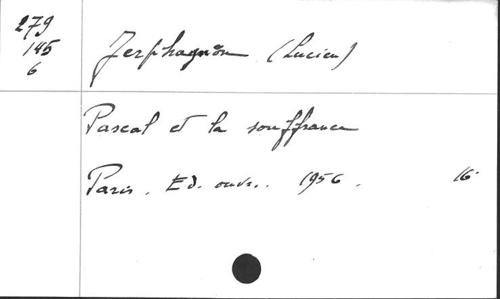 279
145
6
Jerphagnon (Lucien)
Pascal et la souffrance
Paris. Ed. ouvr.. 1956. 16°